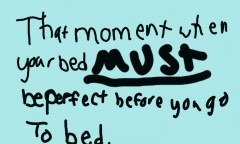 That moment when
your bed MUST
be perfect before you go
To bed.